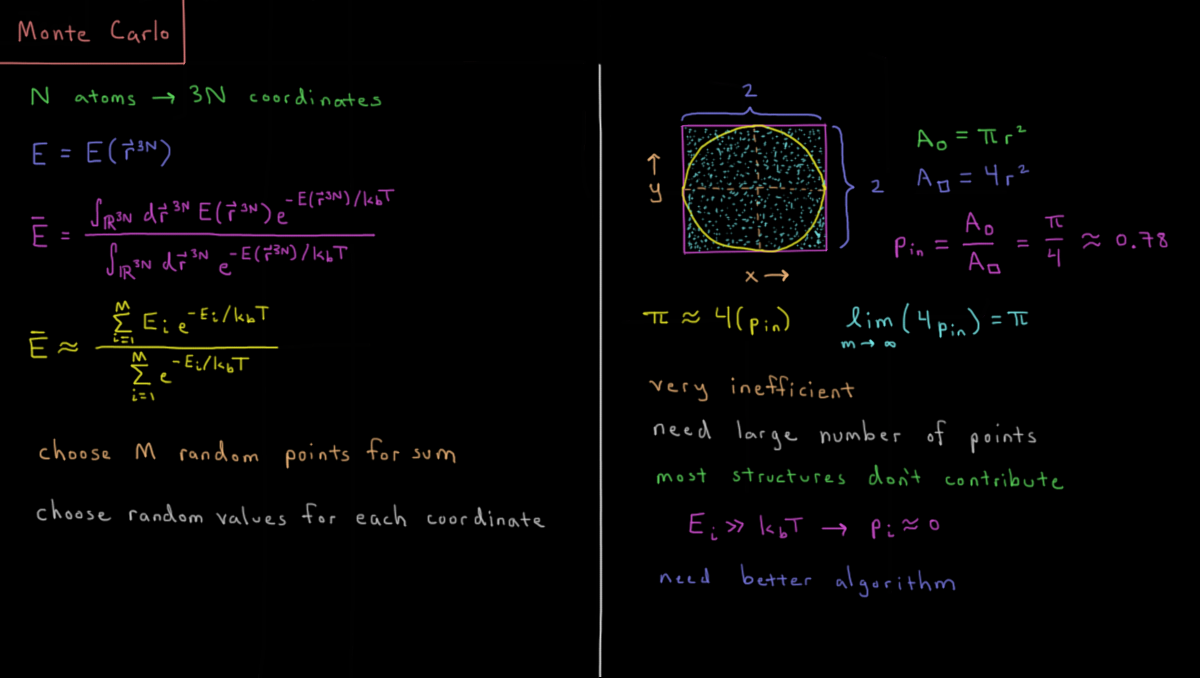 Monte Carlo
N atoms → 3N coordinates
E = E(r⃗³ᴺ)
Ē = ∫_ℝ³ᴺ dr⃗³ᴺ E(r⃗³ᴺ) e^(-E(r⃗³ᴺ)/k_bT) / ∫_ℝ³ᴺ dr⃗³ᴺ e^(-E(r⃗³ᴺ)/k_bT)
Ē ≈ ∑_{i=1}^{M} E_i e^(-E_i/k_bT) / ∑_{i=1}^{M} e^(-E_i/k_bT)
choose M random points for sum
choose random values for each coordinate
2
↑
y
2
x →
A_○ = πr²
A_□ = 4r²
p_in = A_○ / A_□ = π/4 ≈ 0.78
π ≈ 4(p_in)
lim_{m→∞} (4p_in) = π
very inefficient
need large number of points
most structures don't contribute
E_i >> k_bT → p_i ≈ 0
need better algorithm